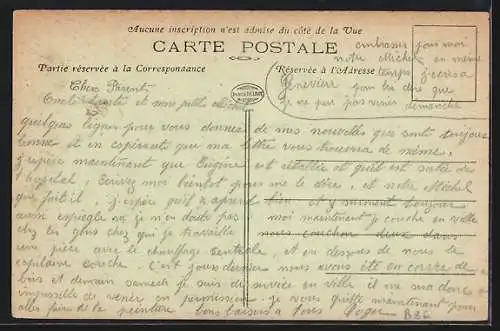 Aucune inscription n'est admise du côté de la Vue
CARTE POSTALE
Partie réservée à la Correspondance
Réservée à l'Adresse
embrassez pour moi
notre Michel en même
temps
Geneviève pour lui dire que
je ne peux pas venir dimanche
Chers Parents
et mon petit
quelques lignes pour vous donner de mes nouvelles qui sont toujours
bonne et en espérant que ma lettre vous trouvera de même,
maintenant que Eugène est rétablie et qu'il est sortie de
hopital, Ecrivez moi bientôt pour me le dire, et notre Michel
que fait il, j'espère qu'il apprend bien et
aussi espiègle je n'en doute pas moi maintenant je couche en ville
chez les gens chez qui je travaille nous couchon deux dans
une pièce avec le chauffage centrale, et en dessous de nous le
capitaine couche. C'est jours dernier nous avons été en corvée de
bois et demain samedi je suis de en ville il me
impossible de venir en permission. je vous quitte maintenant pour
aller faire de la peinture bons baisers à tous Roger
B36